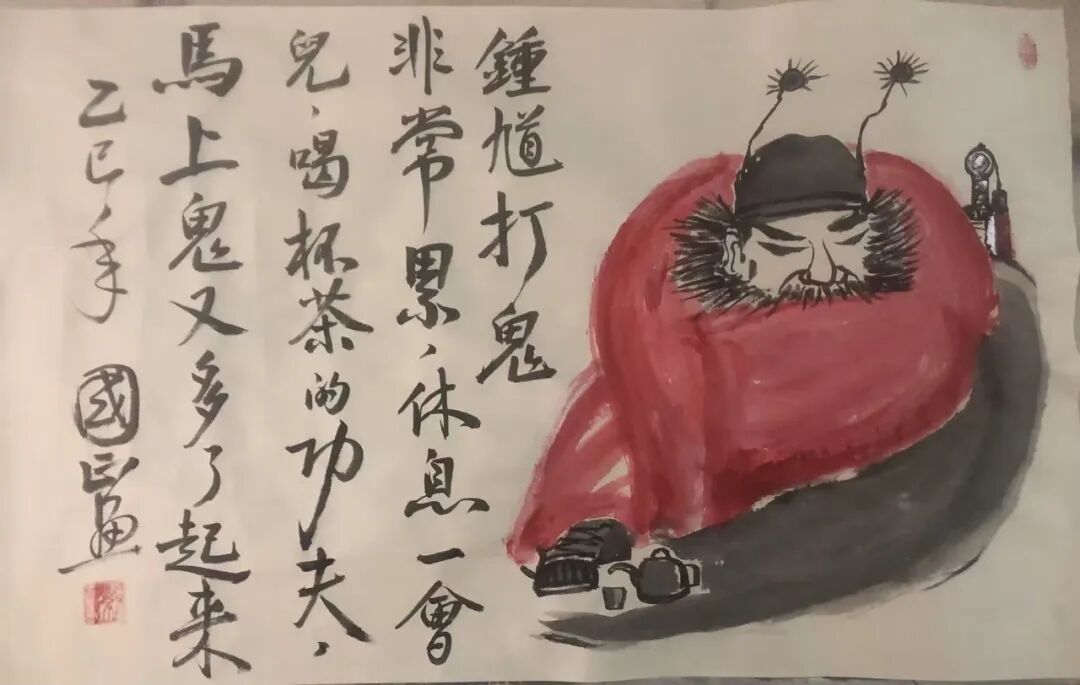 鍾馗打鬼
非常累，休息一會
兒，喝杯茶的功夫，
馬上鬼又多了起来
乙巳年 國正画